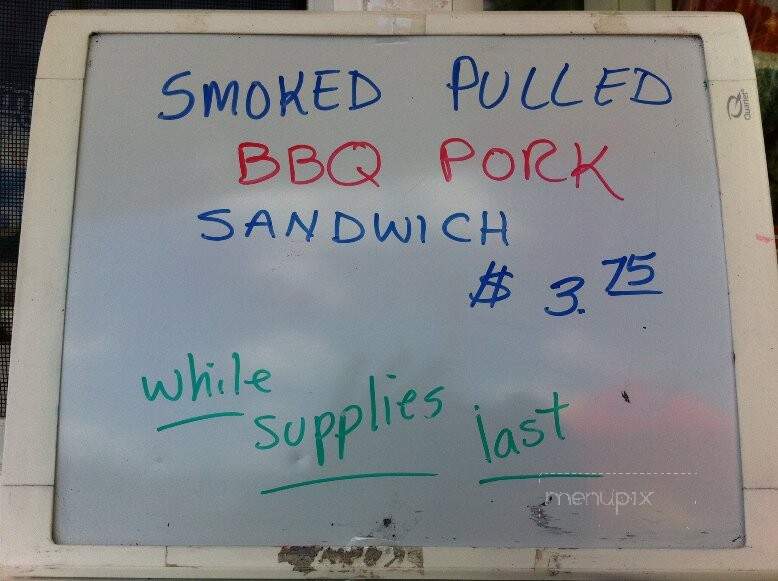 SMOKED PULLED
BBQ PORK
SANDWICH
$ 3.75
while
supplies
last
menupix
Quartet